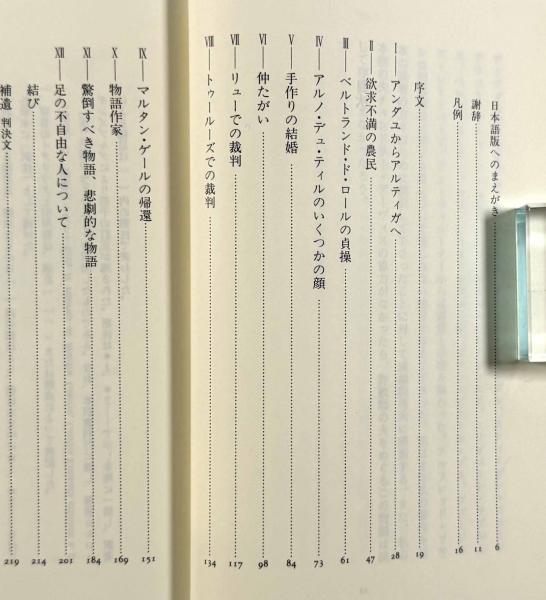 日本語版へのまえがき 6
謝辞 11
凡例 16
序文 19
Ⅰ──アンダユからアルティガへ 28
Ⅱ──欲求不満の農民 47
Ⅲ──ベルトランド・ド・ロールの貞操 61
Ⅳ──アルノ・デュ・ティルのいくつかの顔 73
Ⅴ──手作りの結婚 84
Ⅵ──仲たがい 98
Ⅶ──リューでの裁判 117
Ⅷ──トゥールーズでの裁判 134
Ⅸ──マルタン・ゲールの帰還 151
Ⅹ──物語作家 169
Ⅺ──驚倒すべき物語、悲劇的な物語 184
Ⅻ──足の不自由な人について 201
結び 214
補遺 判決文 219